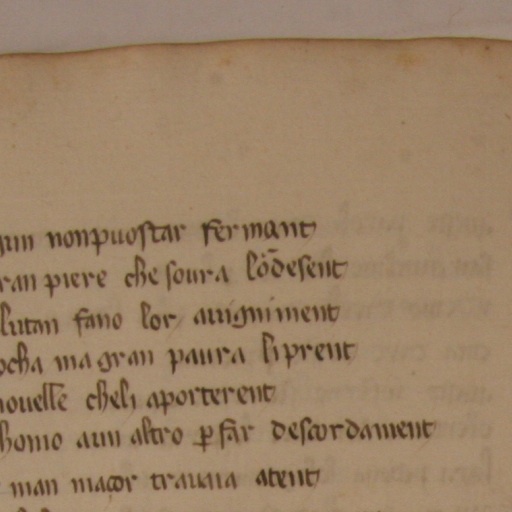 gun non puostar fermant
ran piere che soura lo desent
lutan fano lor auigniment
ocha ma gran paura li prent
nouelle cheli aporterent
homo aun altro ꝑ far descordament
man maçor trauaia atent